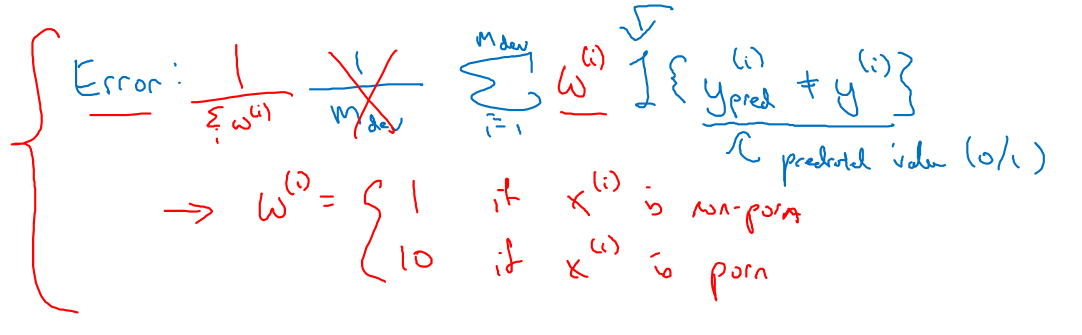 Error: 1/Σ_i w^(i) 1/m_dev Σ_{i=1}^{m_dev} w^(i) 1{y_pred^(i) ≠ y^(i)}
predicted value (0/1)
→ w^(i) = { 1 if x^(i) is non-porn
10 if x^(i) is porn